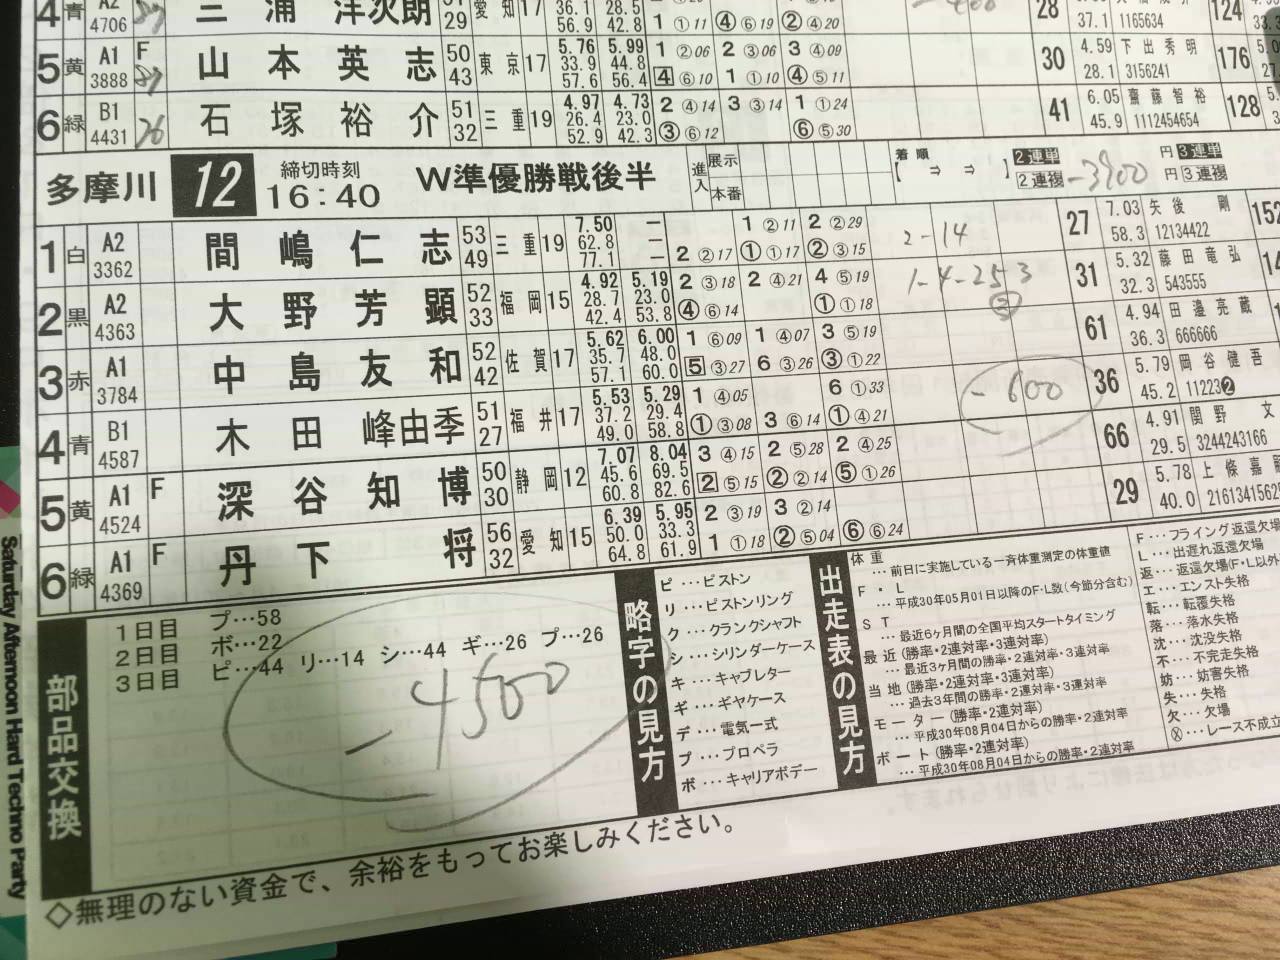 4 青 4706 三浦洋次朗 29 愛知17 36.1 28.5 56.9 42.8 1 ①11 ④ ⑥19 ② ④20 28 37.1 1165634 124
5 黄 A1 3888 F 山本英志 50 43 東京17 5.76 5.99 33.9 44.8 57.6 56.4 1 ②06 2 ③06 3 ④09 4 ⑥10 1 ①10 ④ ⑤11 30 4.59 28.1 下出秀明 3156241 176
6 緑 B1 4431 26 石塚裕介 51 32 三重19 4.97 4.73 26.4 23.0 52.9 42.3 2 ④14 3 ③14 1 ①24 ③ ⑥12 ⑥ ⑤30 41 6.05 45.9 齋藤智裕 1112454654 128
多摩川 12 締切時刻 16:40 W準優勝戦後半 進入 展示 本番 着順 【 ⇒ ⇒ 】 2連単 2連複 -3900 円 3連単 円 3連複
1 白 A2 3362 間嶋仁志 53 49 三重19 7.50 62.8 77.1 ー ー ー 1 ②11 2 ②29 2 ②17 ① ①17 ② ③15 2-14 27 7.03 58.3 矢後剛 12134422 152
2 黒 A2 4363 大野芳顕 52 33 福岡15 4.92 5.19 28.7 23.0 42.4 53.8 2 ③18 2 ④21 4 ⑤19 ④ ⑥14 ① ①18 31 5.32 32.3 藤田竜弘 543555
3 赤 A1 3784 中島友和 52 42 佐賀17 5.62 6.00 35.7 48.0 57.1 60.0 1 ⑥09 1 ④07 3 ⑤19 5 ③27 6 ③26 ③ ①22 61 4.94 36.3 田邉亮蔵 666666
4 青 B1 4587 木田峰由季 51 27 福井17 5.53 5.29 37.2 29.4 49.0 58.8 1 ④05 6 ①33 ① ③08 3 ⑥14 ① ④21 -600 36 5.79 45.2 岡谷健吾 11223❷
5 黄 A1 4524 F 深谷知博 50 30 静岡12 7.07 8.04 45.6 69.5 60.8 82.6 3 ④15 2 ⑤28 2 ④25 2 ⑤15 ② ②14 ⑤ ①26 66 4.91 29.5 関野文 3244243166
6 緑 A1 4369 F 丹下将 56 32 愛知15 6.39 5.95 50.0 33.3 64.8 61.9 2 ③19 3 ②14 1 ①18 ② ⑤04 ⑥ ⑥24 29 5.78 40.0 上條嘉嗣
部品交換
1日目 プ…58
2日目 ボ…22
3日目 ピ…44 リ…14 シ…44 ギ…26 プ…26
-4500
略字の見方
ピ…ピストン
リ…ピストンリング
ク…クランクシャフト
シ…シリンダーケース
キ…キャブレター
ギ…ギヤケース
デ…電気一式
プ…プロペラ
ボ…キャリアボデー
出走表の見方
体重
…前日に実施している一斉体重測定の体重値
F・L
…平成30年05月01日以降のF・L数(今節分含む)
ST
…最近6ヶ月間の全国平均スタートタイミング
最近(勝率・2連対率・3連対率)
…最近3ヶ月間の勝率・2連対率・3連対率
当地(勝率・2連対率・3連対率)
…過去3年間の勝率・2連対率・3連対率
モーター(勝率・2連対率)
…平成30年08月04日からの勝率・2連対率
ボート(勝率・2連対率)
…平成30年08月04日からの勝率・2連対率
F…フライング返還欠場
L…出遅れ返還欠場
返…返還欠場(F・L以外
エ…エンスト失格
転…転覆失格
落…落水失格
沈…沈没失格
不…不完走失格
妨…妨害失格
失…失格
欠…欠場
Ⓧ…レース不成立
◇無理のない資金で、余裕をもってお楽しみください。
Saturday Afternoon Hard Techno Party